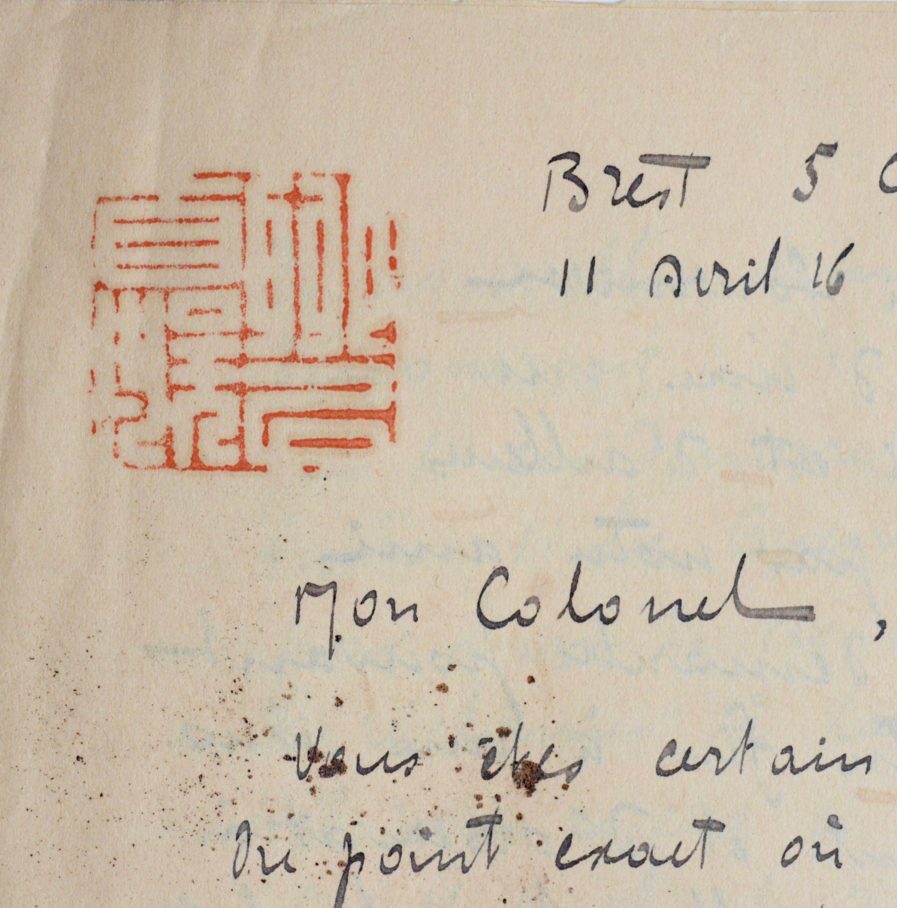 Brest 5
11 Avril 16
Mon Colonel,
Vous êtes certain
du point exact où